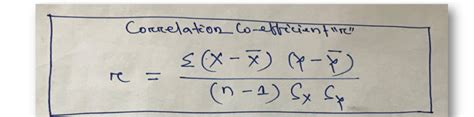 Correlation Co-efficient "r"
r = Σ (X - X̄) (Y - Ȳ) / (n - 1) Sx Sy